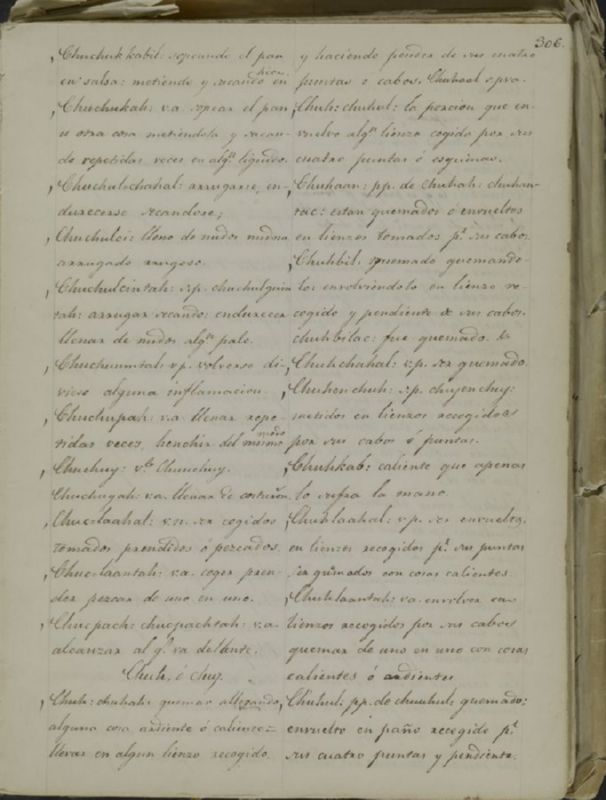 306.
Chuchukkabil: sopeando el pan
en salsa: metiendo y sacando
Chuchukah: v.a. sopear el pan
u otra cosa metiendola y sacan-
do repetidas veces en algⁿ liquido.
Chuchulchahal: arrugarse, en-
durecerse secandose;
Chuchulci: lleno de nudos
arrugado rugoso.
Chuchulcintah: v.p. chuchulquin
tah: arrugar secando: endurecer
llenar de nudos algⁿ palo.
Chuchunmtah: v.p. volverse di-
vieso alguna inflamacion.
Chuchupah: v.a. llenar repe-
tidas veces, henchir del mismo modo
Chuchuy: vᵉ Chunchuy.
Chuchuyah: v.a. llenar de costuras,
Chuclaahal: v.n. ser cogidos
tomados prendidos ó pezcados.
Chuclaantah: v.a. coger pren-
der pezcar de uno en uno.
Chucpach: chucpachtah: v.a.
alcanzar al q.ᵉ va delante.
Chuh, ó chuy.
Chuh: chuhah: quemar allegando
alguna cosa ardiente ó caliente:=
llevar en algun lienzo recogido.
y haciendo pender de sus cuatro
puntas o cabos.
Chuh: chuhul: la porcion que en-
vuelve algⁿ lienzo cogido por sus
cuatro puntas ó esquinas.
Chuhaan: pp. de chuhah: chuhan-
tac: estan quemados ó envueltos
en lienzos tomados pʳ sus cabos.
Chuhbil: quemado quemando-
lo: envolviéndolo en lienzo re-
cogido y pendiente de sus cabos.
chuhbilac: fue quemado &
Chuhchahal: v.p. ser quemado
Chuhenchuh: v.p. chuyenchuy:
metidos en lienzos recogidos
por sus cabos ó puntas.
Chuhkab: caliente que apenas
lo sufra la mano.
Chuhlaahal: v.p. ser envueltos
en lienzos recogidos pʳ sus puntas
ser quemados con cosas calientes.
Chuhlaantah: va. envolver en
lienzos recogidos por sus cabos
quemar de uno en uno con cosas
calientes ó ardientes
Chuhul: pp. de chuuhul: quemado:
envuelto en paño recogido pʳ
sus cuatro puntas y pendiente.